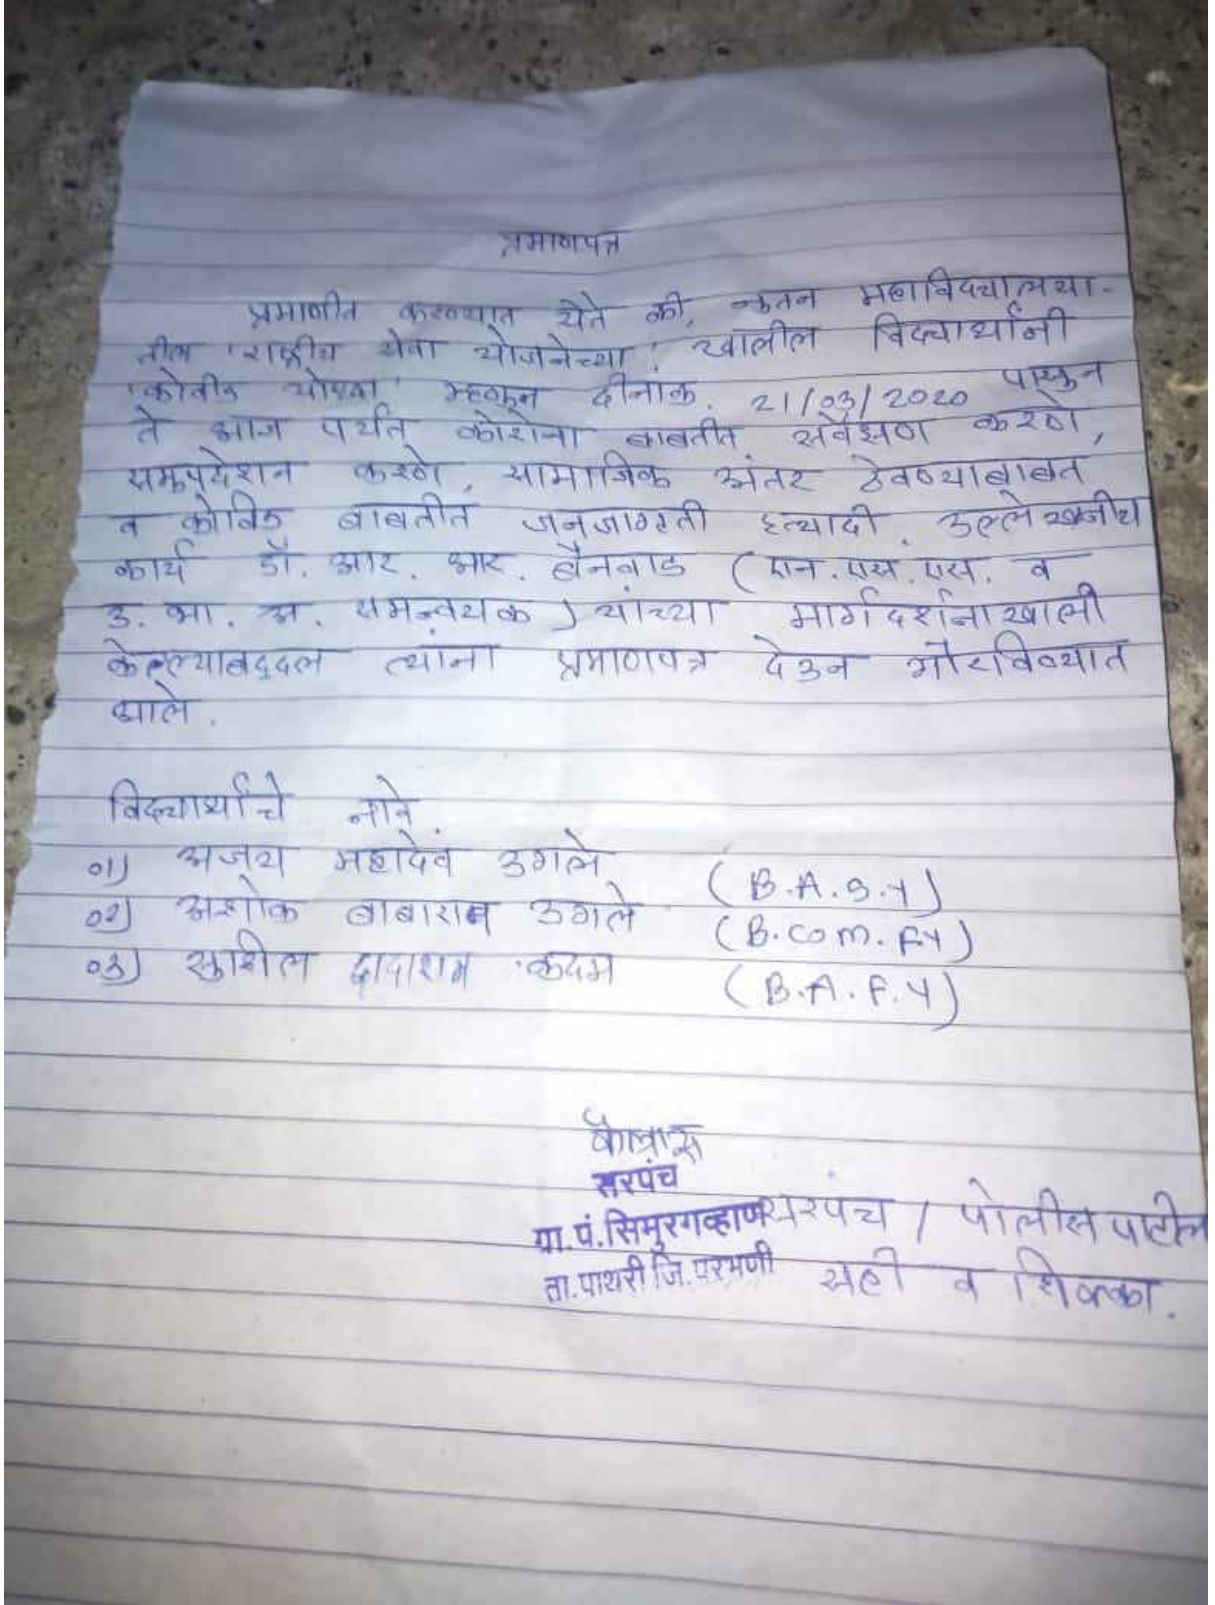 प्रमाणपत्र
प्रमाणीत करण्यात येते की, नुतन महाविद्यालया-
तील 'राष्ट्रीय सेवा योजनेच्या' खालील विद्यार्थांनी
'कोवीड योध्दा' म्हणून दीनांक. 21/03/2020 पासुन
ते आज पर्यंत कोरोना बाबतीत सर्वेक्षण करणे,
समुपदेशन करणे, सामाजिक अंतर ठेवण्याबाबत
व कोविड बाबतीत जनजागृती इत्यादी. उल्लेखनीय
कार्य डॉ. आर. आर. बैनवाड (एन.एस.एस. व
उ. भा. अ. समन्वयक) यांच्या मार्गदर्शनाखाली
केल्याबद्दल त्यांना प्रमाणपत्र देउन गौरविण्यात
आले.
विद्यार्थांचे नावे
01) अजय महादेव उगले (B.A.S.Y)
02) अशोक बाबाराव उगले (B.com.FY)
03) सुशील दादाराव कदम (B.A.F.Y)
कैलास
सरपंच
ग्रा.पं.सिमुरगव्हाण सरपंच / पोलीस पाटील
ता.पाथरी जि.परभणी सही व शिक्का.